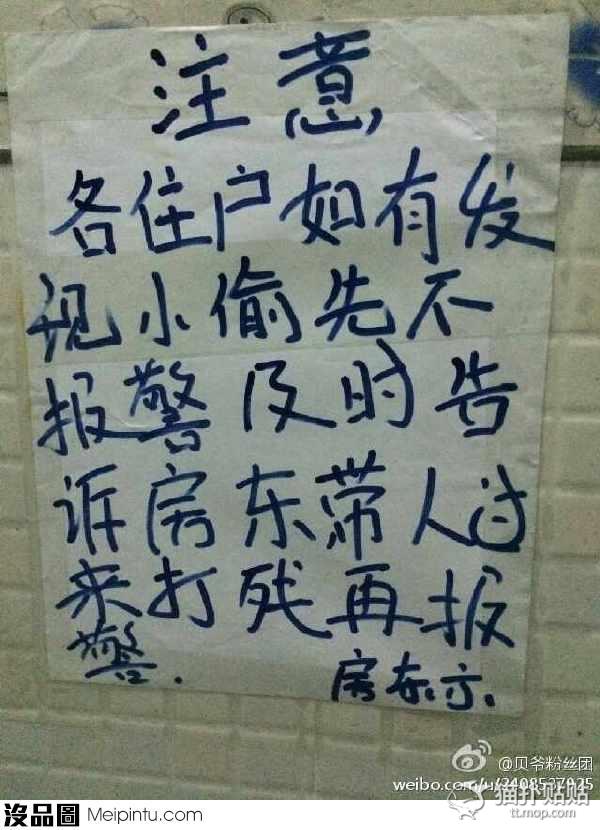 注意
各住户如有发
现小偷先不
报警及时告
诉房东带人过
来打残再报
警.
房东示.
@贝爷粉丝团
weibo.com/u/2408527925
猫扑贴贴
tt.mop.com
没品圖 Meipintu.com